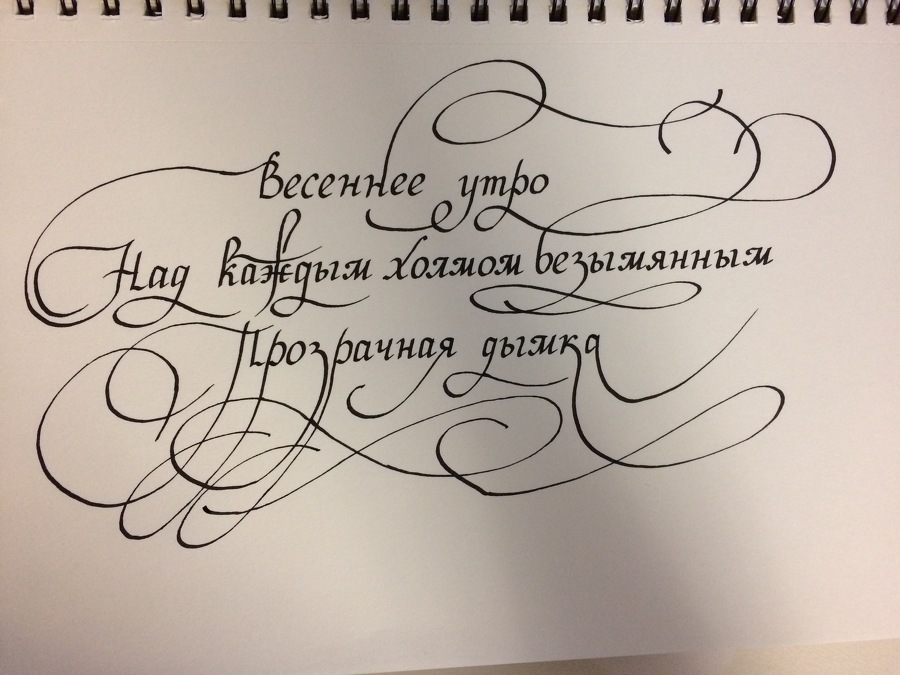 Весеннее утро
Над каждым холмом безымянным
Прозрачная дымка